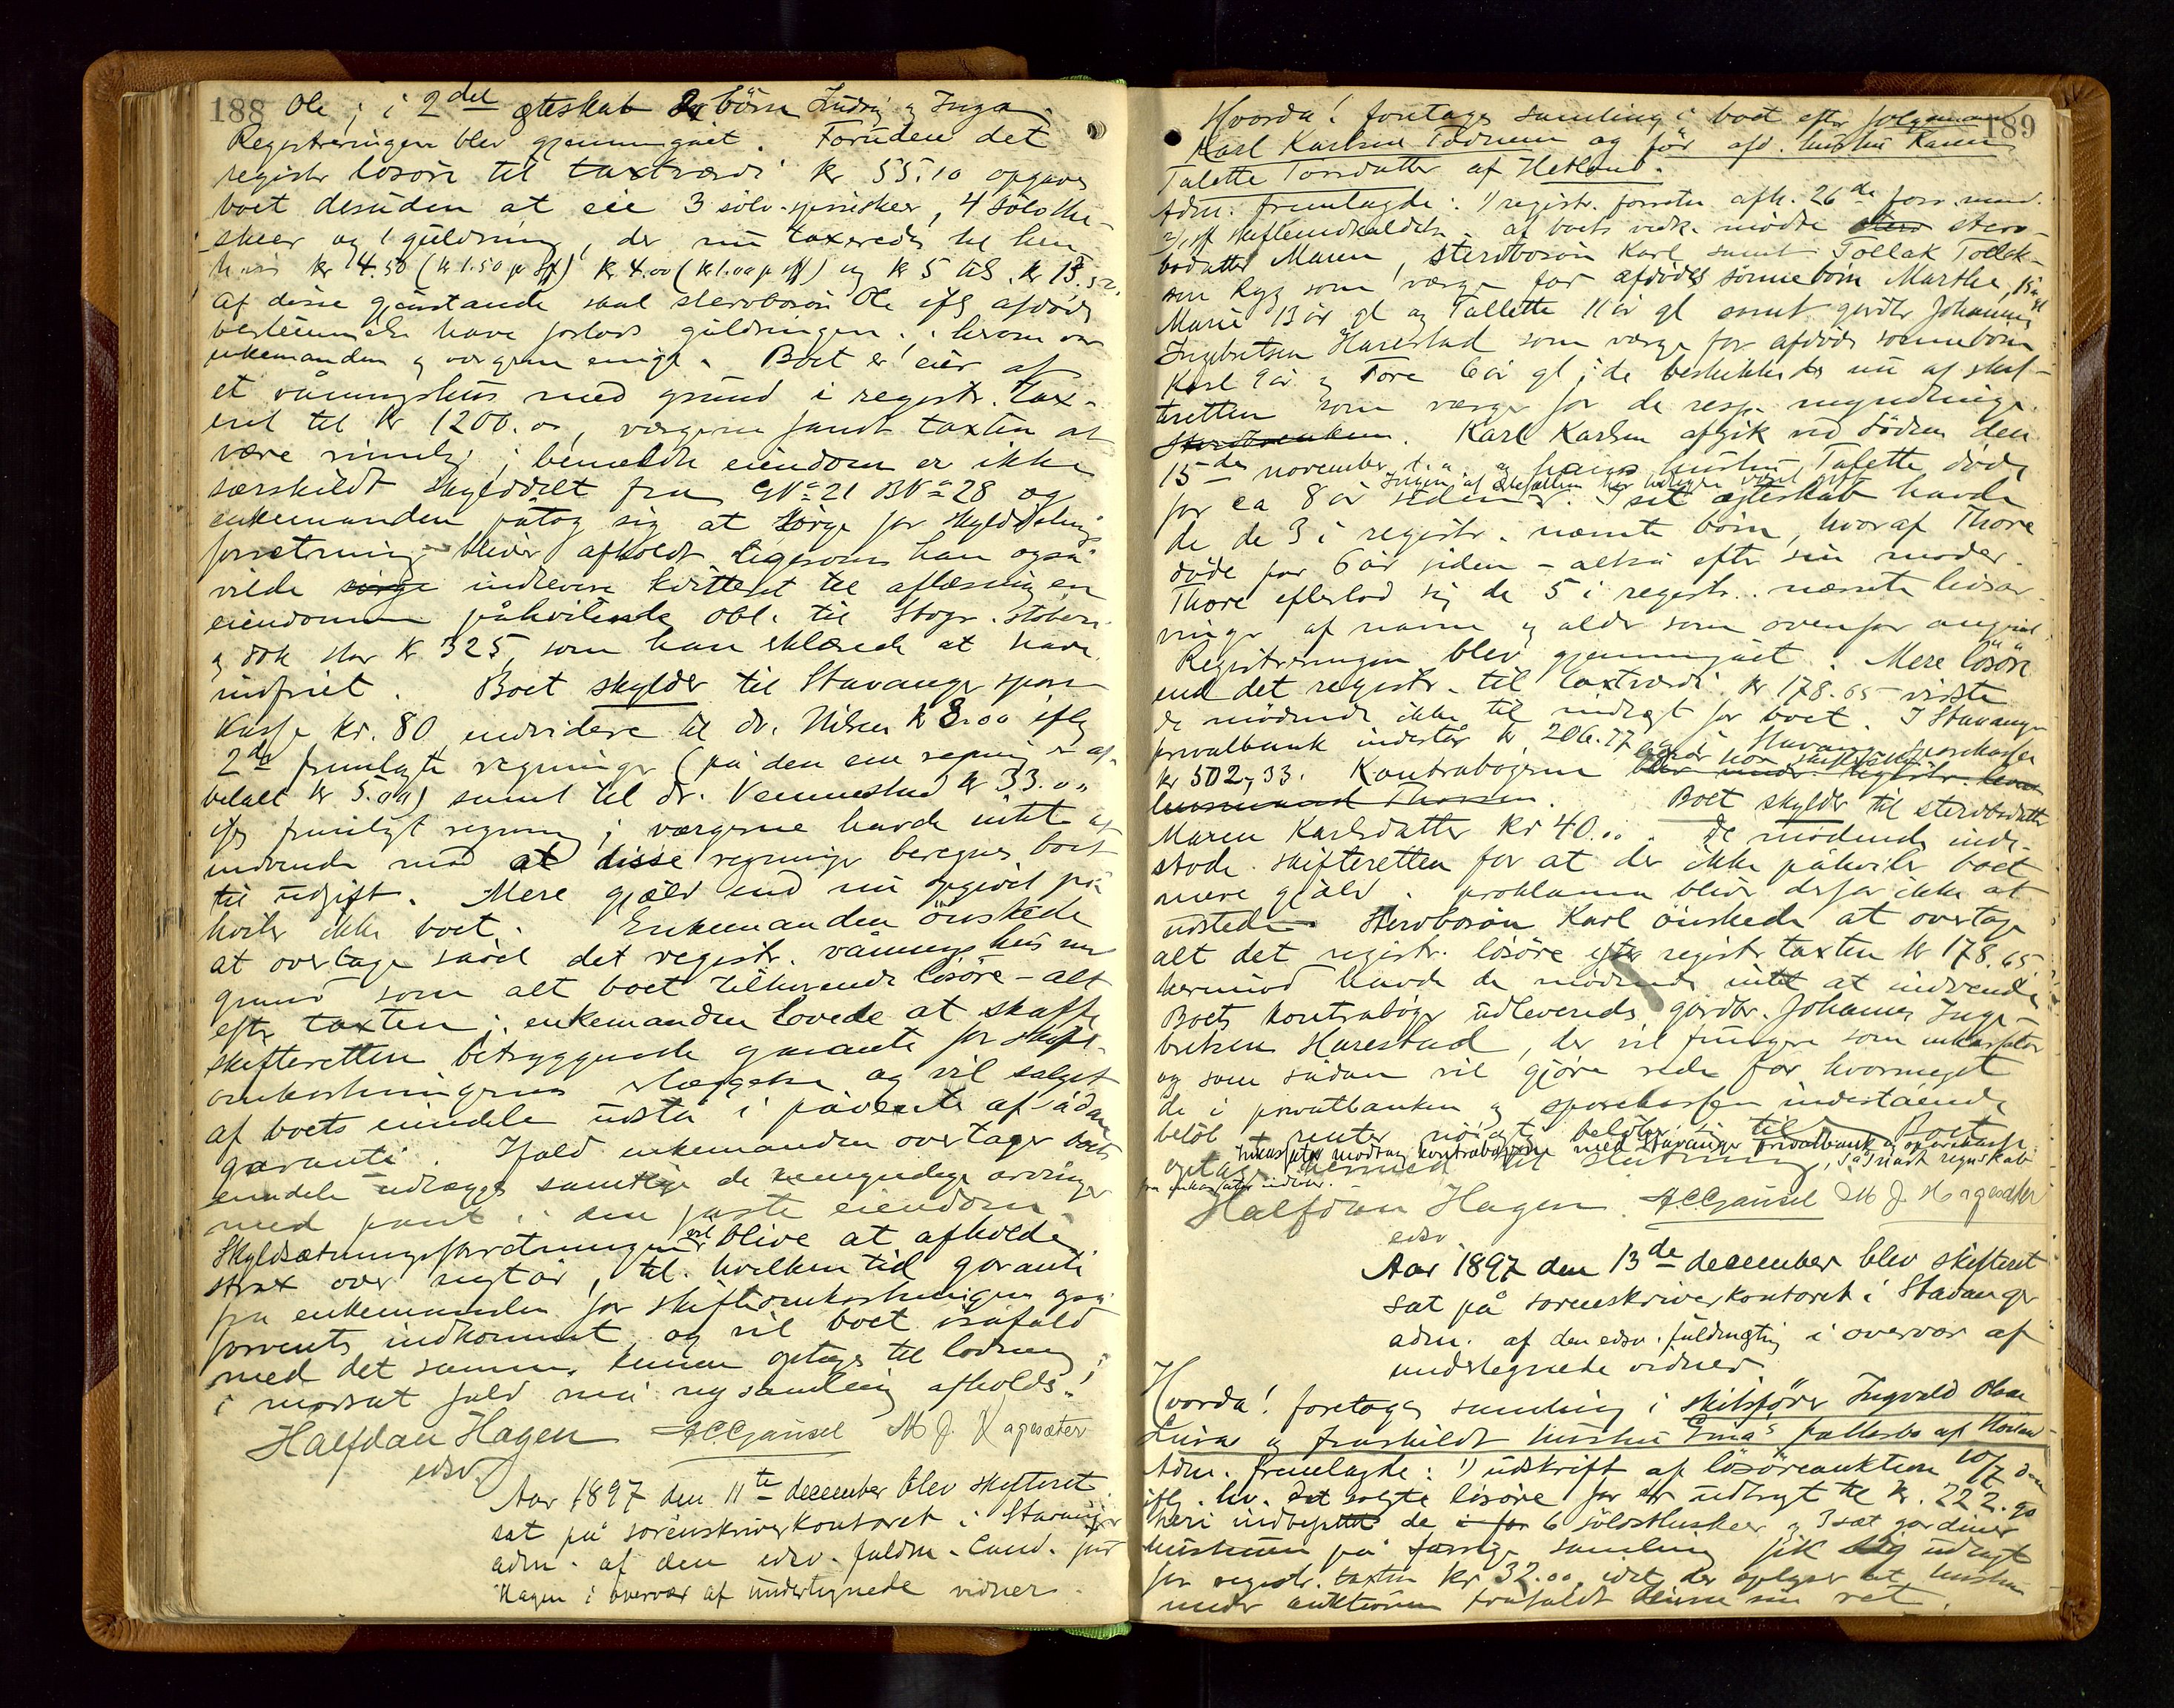 188 Ole; i 2det ægteskab 2 børn Ludvig & Inga.
Registreringen blev gjennemgået. Foruden det
registr. løsøre til taxtværdi kr 55.10 opgaves
boet desuden at eie 3 sølvspiseskeer, 4 sølvthe-
skeer og 1 guldring, der nu taxeredes til hen
hvis kr 4.50 (kr 1.50 pr st) kr 4.00 (kr 1.00 pr st) og kr 5 tils. kr 13.50.
Af disse gjenstande skal stervbosøn Ole iflg afdødes
bestemmelse have forlods guldringen; herom var
enkemanden og værgerne enige. Boet er eier af
et våningshus med grund i registr. tax-
eret til kr 1200.00, værgerne fandt taxten at
være rimelig; bemeldte eiendom er ikke
særskildt skylddelt fra GNo 21 BNo 28 og
enkemanden påtog sig at sørge for skylddelings
forretning bliver afholdt ligesom han også
vilde sørge indlevere kvitteret til aflæsning en
eiendommen påhvilende obl. til
stor kr 325, som han erklærede at have
indfriet. Boet skylder til Stavanger spare
kasse kr. 80 endvidere til dr. Nilsen kr 8.00 iflg
2de fremlagte regninger (på den ene regning er af-
betalt kr 5.00) samt til dr. Vennestad kr 33.00
iflg fremlagt regning; værgerne havde intet at
indvende mod at disse regninger beregnes boet
til udgift. Mere gjæld end nu opgivet på-
hviler ikke boet. Enkemanden ønskede
at overtage såvel det registr. våningshus m
grund som alt boet tilhørende løsøre - alt
efter taxten; enkemanden lovede at skaffe
skifteretten betryggende garanti for skifte-
omkostningernes erlæggelse og vil salget
af boets eiendele udstå i påvente af sådan
garanti. Ifald enkemanden overtager boets
eiendele udlægges samtlige de umyndige arvinger
med pant i den faste eiendom.
Skyldsætningsforretningen vil blive at afholde
strax over nytår, til hvilken tid garanti
fra enkemanden for skifteomkostningen også
forventes indkommet og vil boet isåfald
med det samme kunne optages til lodning;
i modsat fald må ny samling afholdes.
Halfdan Hagen A C Gjansel M J. Hagesæter
edsv.
Aar 1897 den 11te december blev skifteret
sat på sorenskriverkontoret i Stavanger
adm. af den edsv. fuldm. Cand. jur
Hagen i overvær af undertegnede vidner.
189
Hvorda! foretages samling i boet efter folgemand
Karl Karlsen Tødnem og før afd. hustru Karen
Talette Torsdatter af Hetland.
Adm. fremlagde: 1) registr. forretn afh. 26de forr. mnd.
2) skifteindkaldelse. af boets vedk. mødte sterv-
bodatter Maren, stervbosøn Karl samt Tollak Tollak-
sen Ryg som værge for afdødes sønnebørn Marthe, 15 år gl
Marie 13 år gl og Tallette 11 år gl samt gårdbr Johannes
Ingebretsen Harestad som værge for afdødes sønnebørn
Karl 9 år & Tore 6 år gl; de beskikkedes nu af skif-
teretten som værger for de resp. umyndige.
Karl Karlsen afgik ved døden den
15de november d. a. og hans hustru, Talette døde
for ca 8 år siden. I sit ægteskab havde
Ingen af ægtefællen har tidligere været gift
de de 3 i registr. nævnte børn, hvoraf Thore
døde for 6 år siden - altså efter sin moder.
Thore efterlod sig de 5 i registr. nævnte livsar-
vinger af navn og alder som ovenfor angivet.
Registreringen blev gjennemgået. Mere løsøre
end det registr. til taxtværdi kr 178.65 vidste
de mødende ikke til indtægt for boet. I Stavanger
privatbank indestår kr 206.77 og i Stavanger sparekasse
kr 502,33. Kontrabøgerne beror hos skifteretten blev under registr. hos
husmand Thorsen. Boet skylder til stervbodatter
Maren Karlsdatter kr 40.00. De mødende inde-
stode skifteretten for at der ikke påhviler boet
mere gjæld. proklama bliver derfor ikke at
udstede. Stervbosøn Karl ønskede at overtage
alt det registr. løsøre efter registr taxten kr 178.65
hermod havde de mødende intet at indvende
Boets kontrabøger udleveredes gårdbr. Johannes Inge-
bretsen Harestad, der vil fungere som inkassator
og som sådan vil gjøre rede for hvormeget
de i privatbanken og sparekassen indestående
beløb + renter nøiagtig beløber sig til. Boet
Inkassator modtog kontrabøgerne med Stavanger Privatbank og sparekasse
optages hermed til slutning, såsnart regnskab
fra inkassator indkom.
Halfdan Hagen A C Gjansel M J. Hagesæter
edsv
Aar 1897 den 13de december blev skifteret
sat på sorenskriverkontoret i Stavanger
adm. af den edsv. fuldmægtig i overvær af
undertegnede vidner
Hvorda! foretages samling i skibsfører Ingvald Olsen
Lura og fraskildt hustru Ema's fallesbo af Hetland
Adm. fremlagde: 1) udskrift af løsøreauktion 10/7 d.a.
iflg. hv. det solgte løsøre for er udbragt til kr. 222.90
heri indbefattet de 6 sølvtheskeer & 3 sæt gardiner
hustruen på forrige samling fik sig udlagt
for registr. taxten kr 32.00 idet der oplyses at hustruen
under auktionen frafaldt denne sin ret.